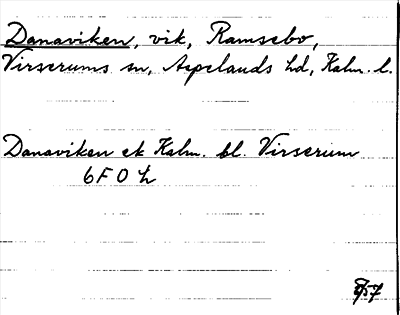 Danaviken, vik, Ramsebo,
Virserums sn, Aspelands hd, Kalm. l.
Danaviken ek Kalm. bl. Virserum
6F0h